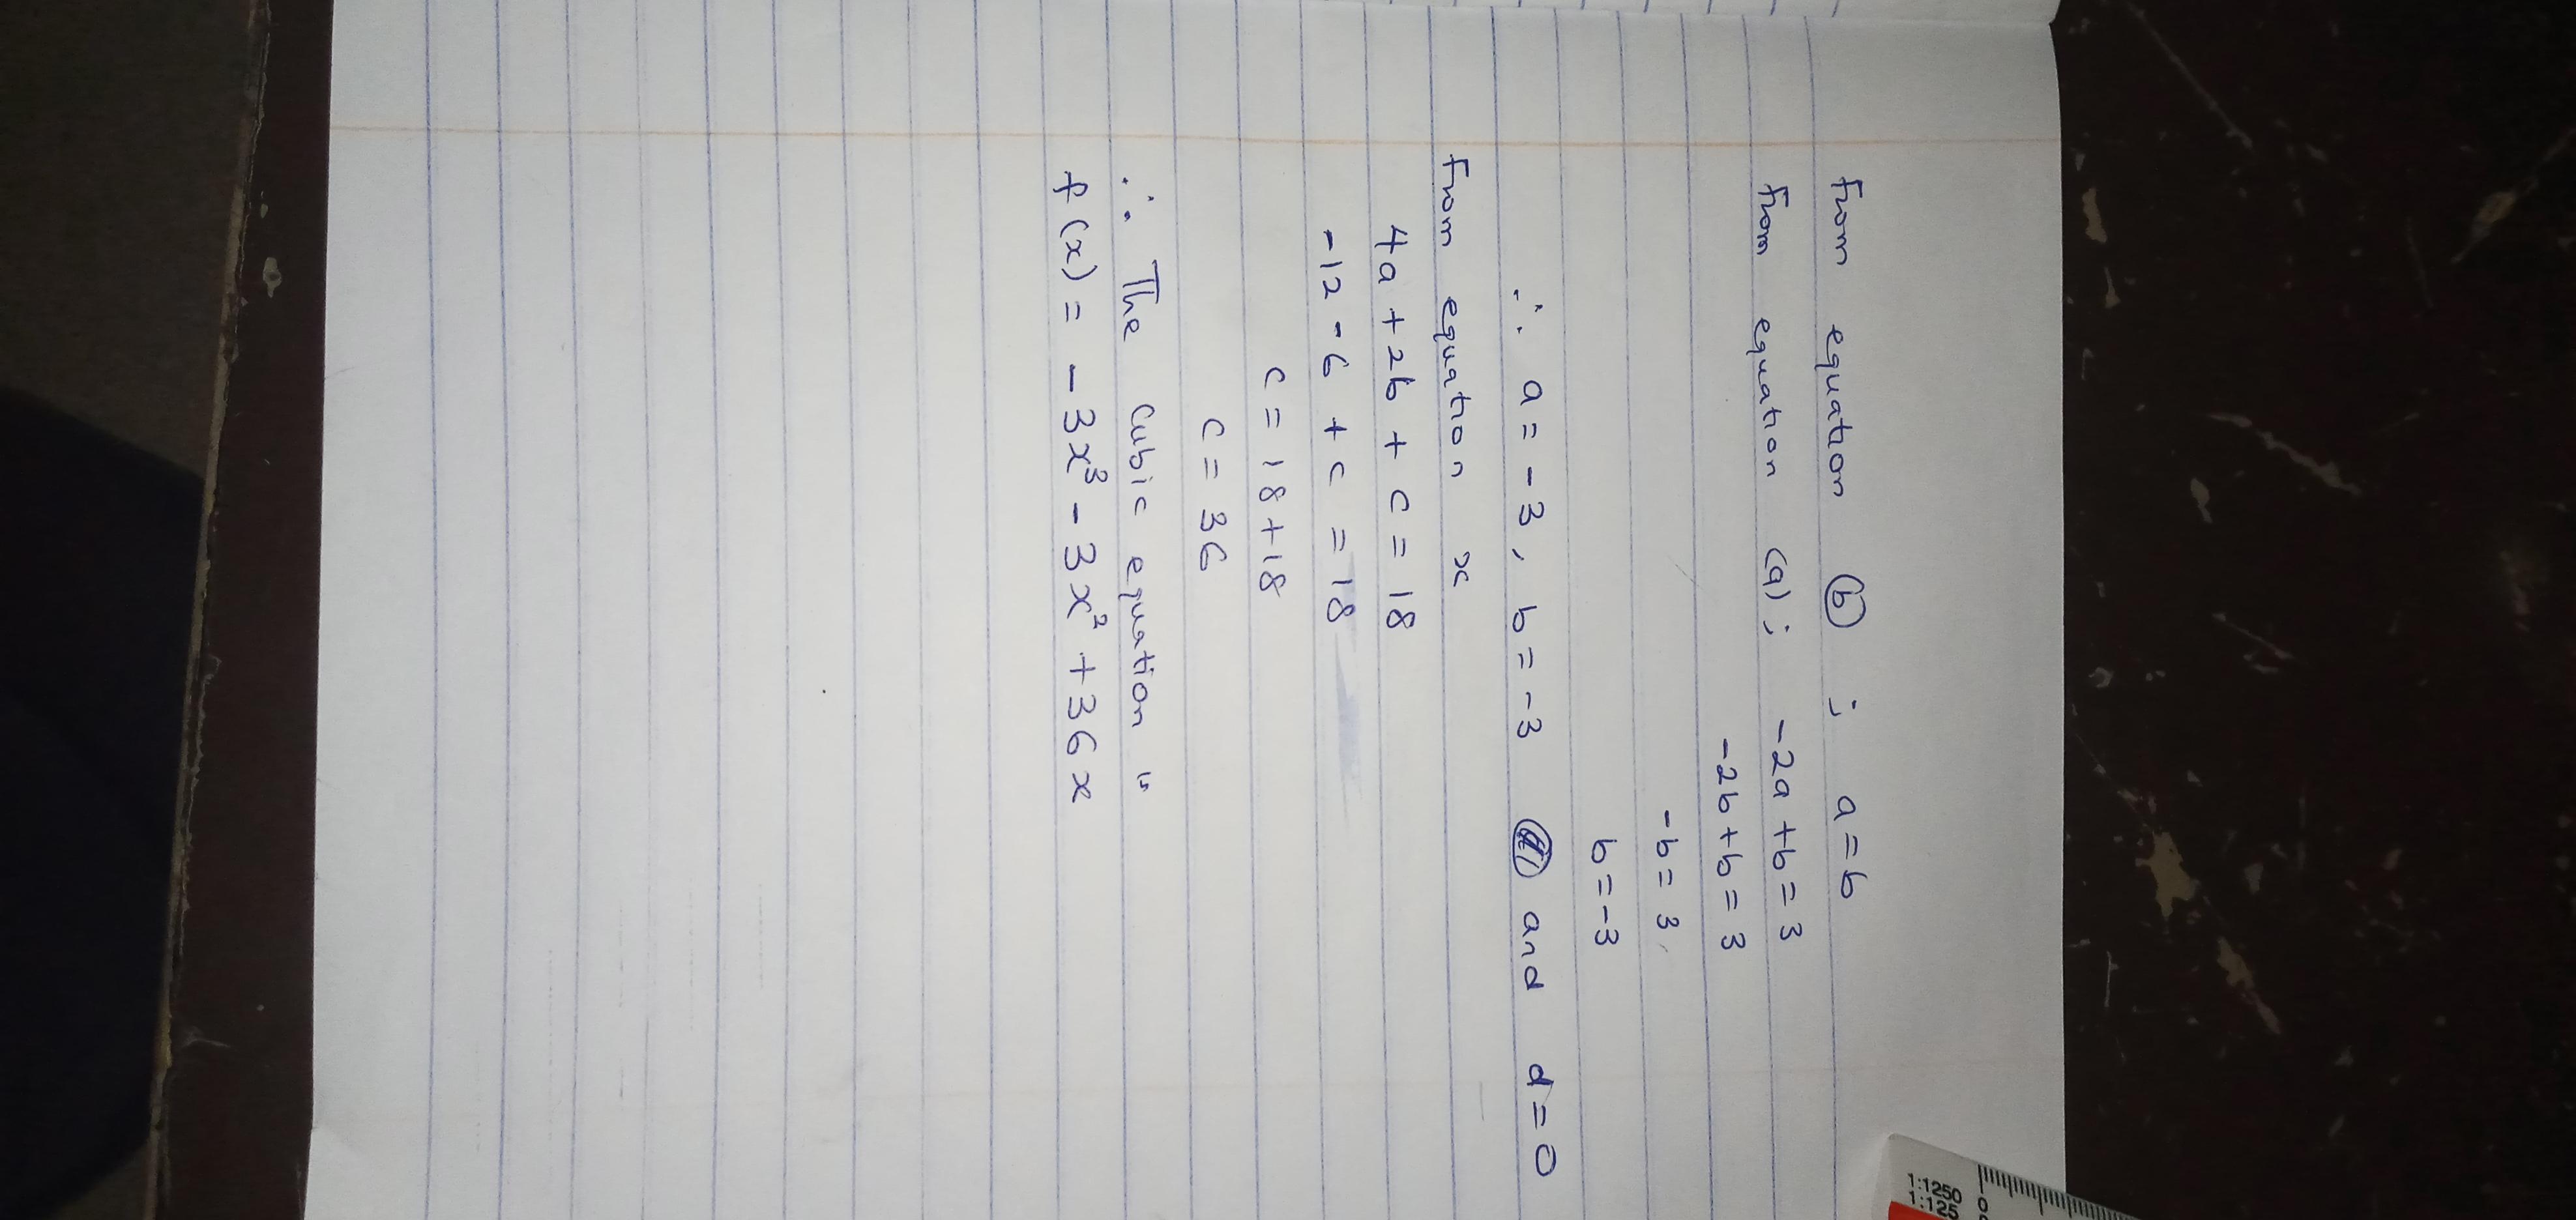 From equation (b) ; a = b
From equation (a) ; -2a + b = 3
-2b + b = 3
-b = 3
b = -3
∴ a = -3, b = -3 and d = 0
From equation x
4a + 2b + c = 18
-12 - 6 + c = 18
c = 18 + 18
c = 36
∴ The cubic equation is
f(x) = -3x³ - 3x² + 36x
1:1250
1:125
0